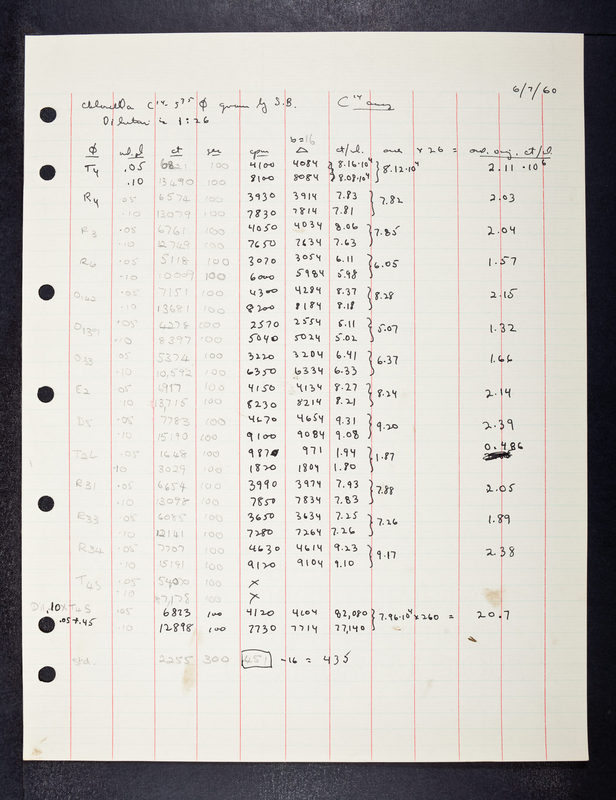 6/7/60
Chlorella C14 φ grown by S.B. C14 assay
Dilution is 1:26
b=16
φ ml.pl ct sec cpm Δ ct/.1 ave × 26 = ord. orig. ct/.1
T4 .05 100 4100 4084 8.16·10⁴ } 8.12·10⁴ 2.11 ·10⁶
.10 13490 100 8100 8084 8.08·10⁴
R4 .05 6574 100 3930 3914 7.83 } 7.82 2.03
.10 13079 100 7830 7814 7.81
R3 .05 6761 100 4050 4034 8.06 } 7.85 2.04
.10 12749 100 7650 7634 7.63
R6 .05 5118 100 3070 3054 6.11 } 6.05 1.57
.10 10009 100 6000 5984 5.98
.05 7151 100 4300 4284 8.37 } 8.28 2.15
.10 13681 100 8200 8184 8.18
D139 .05 4278 100 2570 2554 5.11 } 5.07 1.32
.10 8397 100 5040 5024 5.02
D33 .05 5374 100 3220 3204 6.41 } 6.37 1.66
.10 10,592 100 6350 6334 6.33
E2 .05 100 4150 4134 8.27 } 8.24 2.14
.10 13,715 100 8230 8214 8.21
D5 .05 7783 100 4670 4654 9.31 } 9.20 2.39
.10 15190 100 9100 9084 9.08
.05 1648 100 987 971 1.94 } 1.87 0.486
.10 3029 100 1820 1804 1.80
R31 .05 6654 100 3990 3974 7.93 } 7.88 2.05
.10 13098 100 7850 7834 7.83
R33 .05 6085 100 3650 3634 7.25 } 7.26 1.89
.10 12141 100 7280 7264 7.26
R34 .05 7707 100 4630 4614 9.23 } 9.17 2.38
.10 15191 100 9120 9104 9.10
T4S .05 100 x
.10 100 x
Dil 10x T4S .05 6823 100 4120 4104 82,080 } 7.96·10⁴ × 260 = 20.7
.05+.45 .10 12898 100 7730 7714 77,140
std. 2255 300 451 -16 = 435